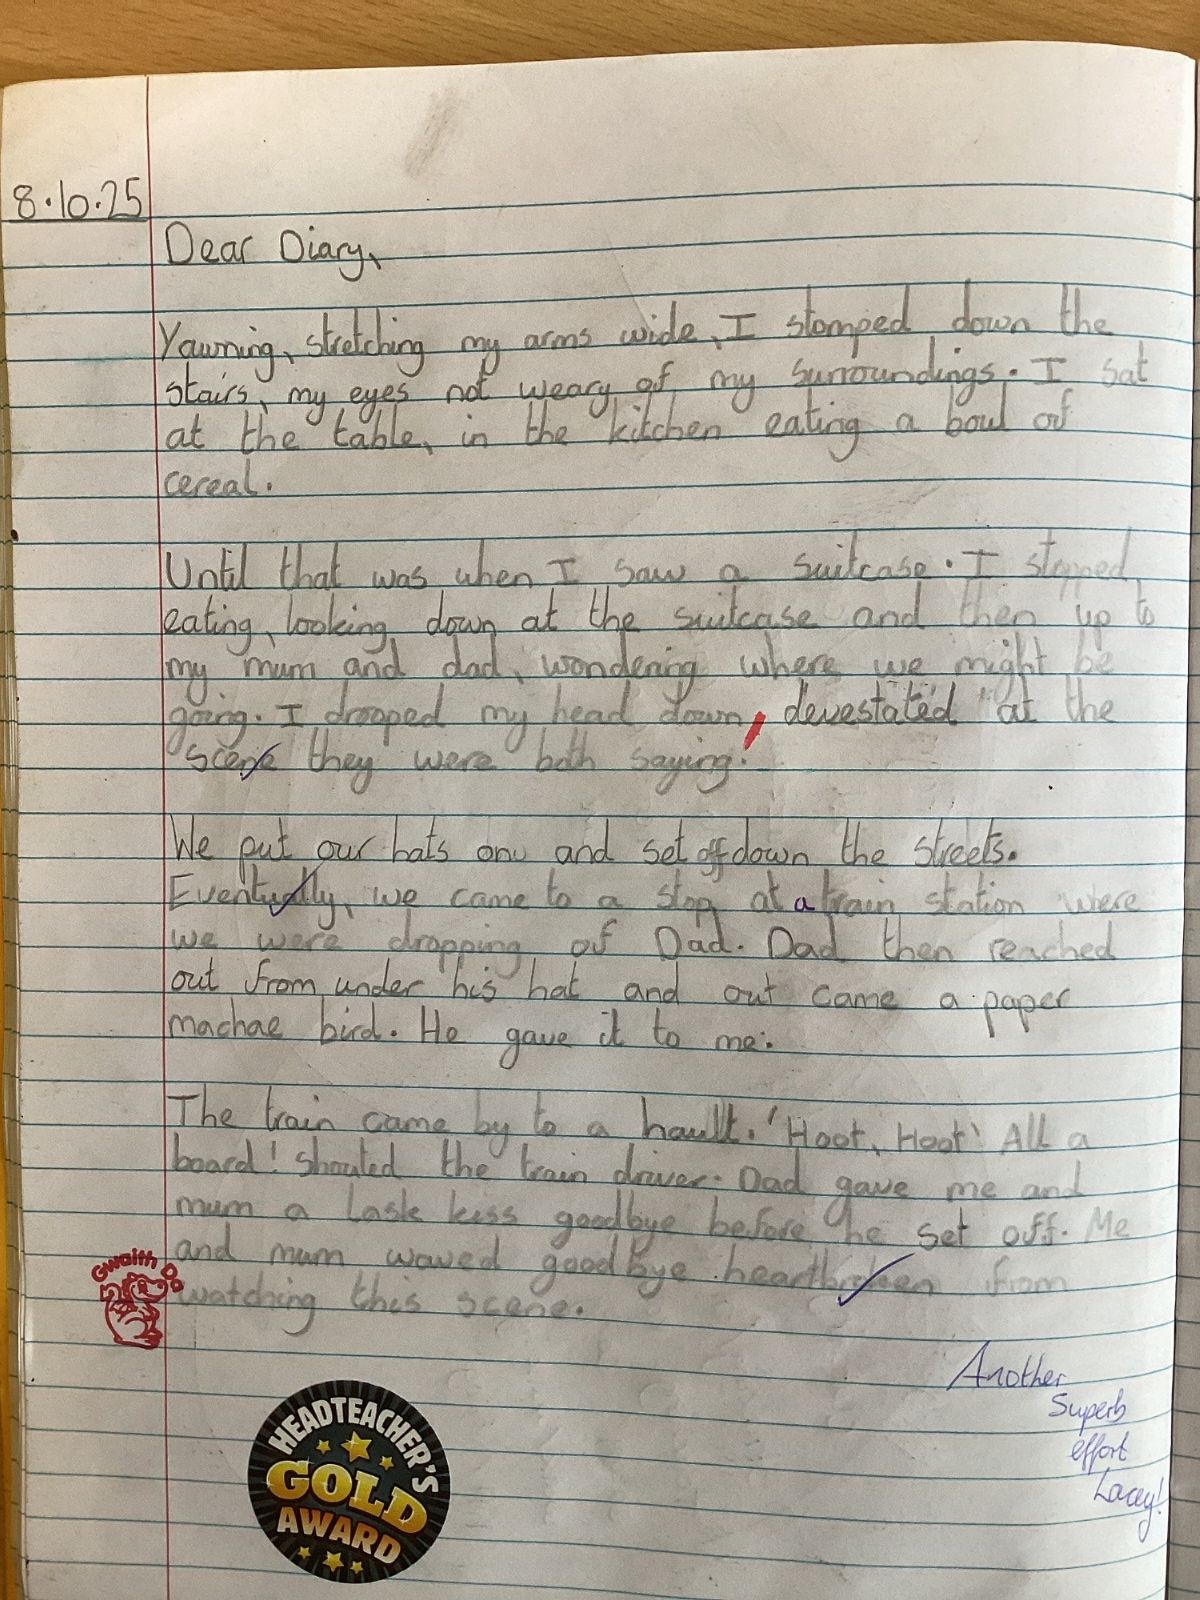 8.10.25
Dear Diary,
Yawning, stretching my arms wide, I stomped down the
stairs, my eyes not weary of my surroundings. I sat
at the table, in the kitchen eating a boul of
cereal.
Until that was when I saw a suitcase. I stopped
eating, looking down at the suitcase and then up to
my mum and dad, wondering where we might be
going. I dropped my head down, devestated at the
scene they were both saying.
We put our hats on and set off down the streets.
Eventually, we came to a stop at a train station where
we were dropping of Dad. Dad then reached
out from under his hat and out came a paper
machae bird. He gave it to me.
The train came by to a hault. 'Hoot, Hoot' All a
board! shouted the train driver. Dad gave me and
mum a lask kiss goodbye before he set off. Me
and mum waved goodbye heartbroken from
watching this scene.
Gwaith
Another
Superb
effort
Lacey!
HEADTEACHER'S
GOLD
AWARD